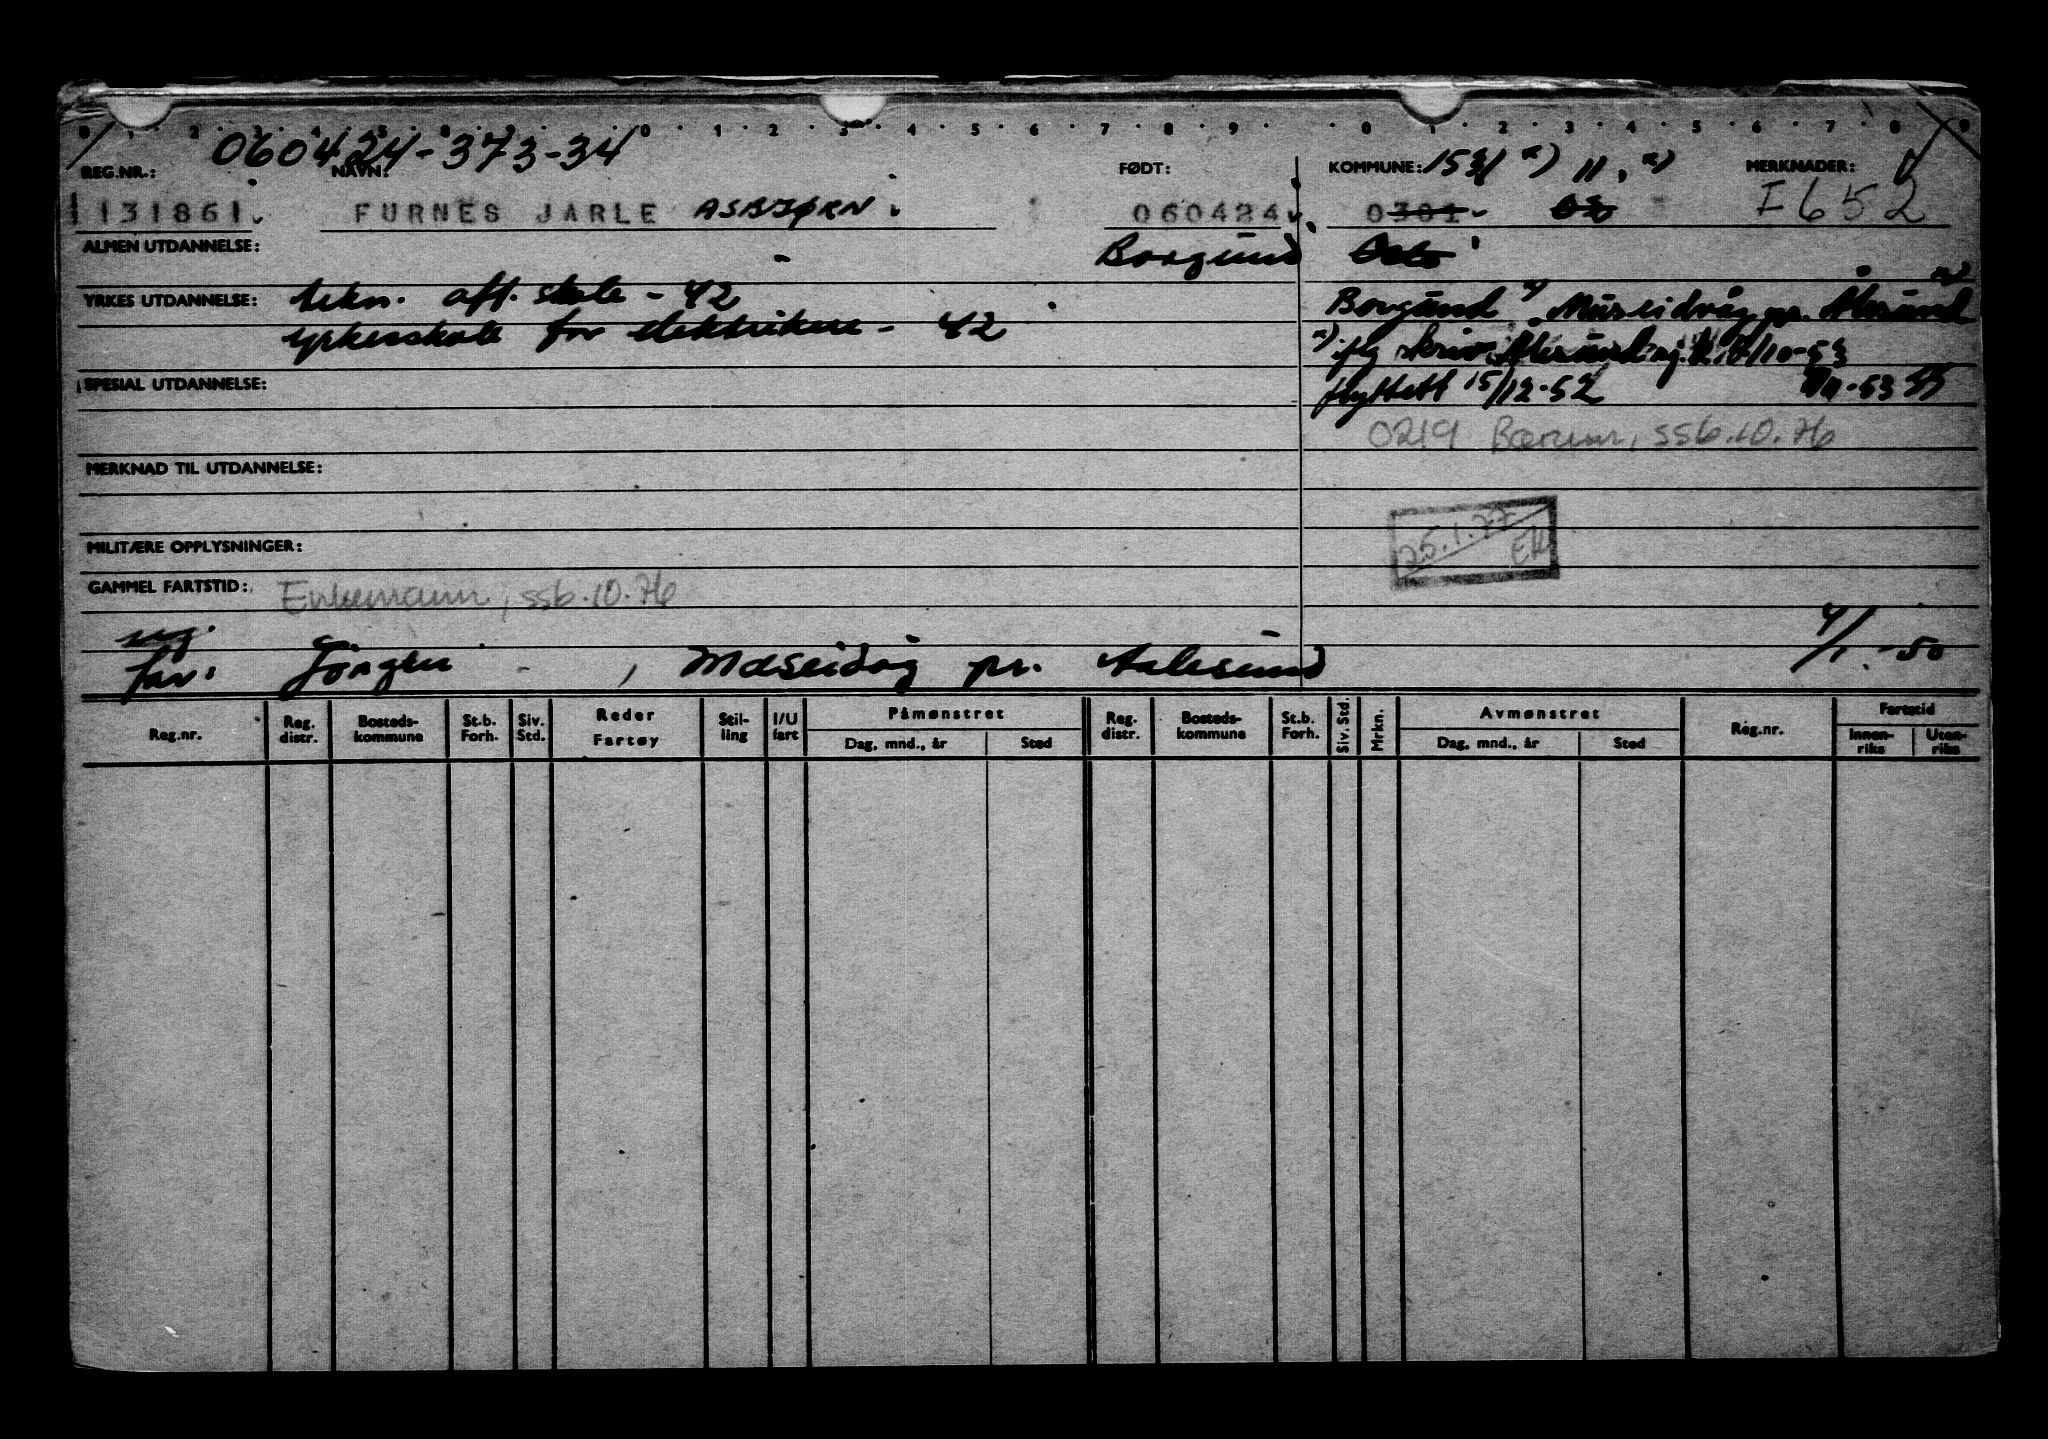 0 1 2 3 4 5 6 7 0 1 2 3 4 5 6 7 8 9 0 1 2 3 4 5 6 7 8 9
060424-373-34
REG.NR.: NAVN: FØDT: KOMMUNE: 1531 x) 11, x) MERKNADER:
131861 FURNES JARLE ASBJØRN 060424 0301 I 652
ALMEN UTDANNELSE: Borgund Oslo
YRKES UTDANNELSE: tekn. aft. skole - 42 Borgund x) pr. Ålesund
yrkesskole for elektrikere - 42 x) flg skriv Ålesund /10-53
SPESIAL UTDANNELSE: flyttett 15/12-52 /11-53
0219 Bærum, ssb.10.76
MERKNAD TIL UTDANNELSE:
25.1.77 EK
MILITÆRE OPPLYSNINGER:
GAMMEL FARTSTID: Enkemann, ssb.10.76
ug.
far: Jörgen, Maseidvåg pr. Aalesund 4/1-50
Reg.nr. Reg. distr. Bosteds-kommune St.b. Forh. Siv. Std. Reder Fartøy Stil-ling I/U fart Påmønstret Dag, mnd., år Sted Reg. distr. Bosteds-kommune St.b. Forh. Siv. Std. Mrkn. Avmønstret Dag, mnd., år Sted Reg.nr. Fartstid Innen-riks Uten-riks